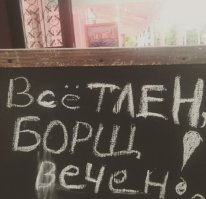 Всё ТЛЕН,
БОРЩ
вечен!